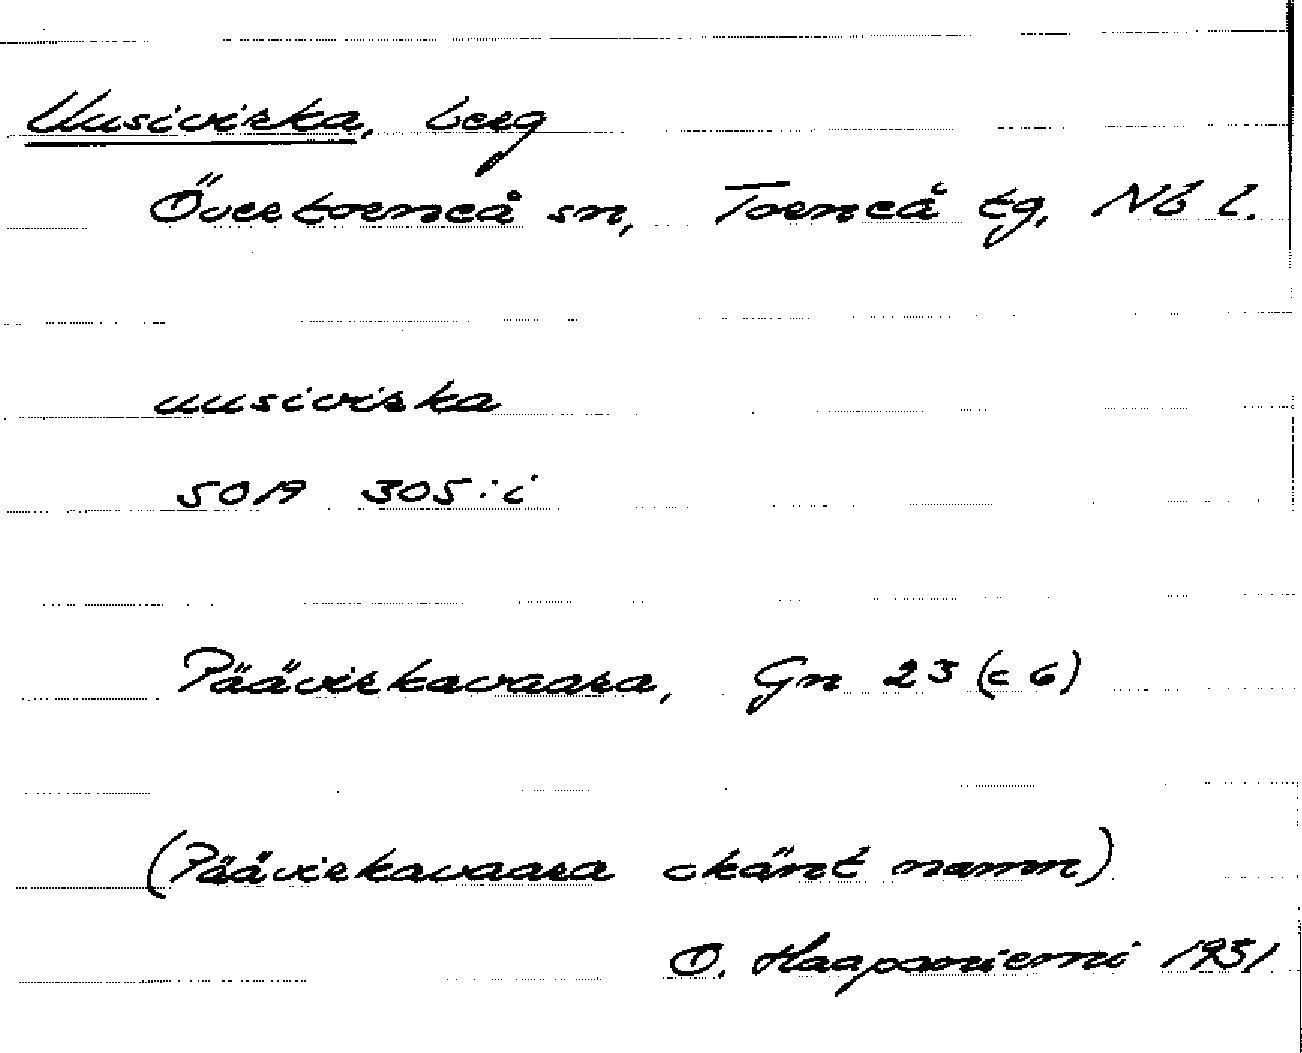 Uusivirka, berg
Övertorneå sn, Torneå tg, Nb l.
uusivirka
SOA 305:i
Päävirkavaara, Gn 23 (c 6)
(Päävirkavaara okänt namn)
O. Haapaniemi 1931